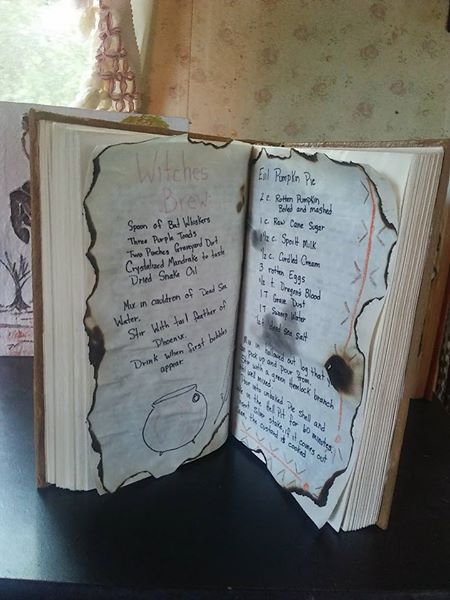 Witches
Brew
Spoon of Bat Whiskers
Three Purple Toads
Two Pinches Graveyard Dirt
Crystalized Mandrake to taste
Dried Snake Oil
Mix in cauldron of Dead Sea
Water.
Stir with tail feather of
Phoenix.
Drink when first bubbles
appear.
Evil Pumpkin Pie
2 c. Rotten Pumpkin
Boiled and mashed
1 c. Raw Cane Sugar
1/2 c. Spoilt Milk
1/2 c. Curdled Cream
3 rotten Eggs
1/2 t. Dragon's Blood
1 T Grave Dust
1 T Swamp Water
Dead sea salt
Mix in hollowed out log that
pick up and pour from
Stir with a green Hemlock branch
well mixed
into unbaked Pie Shell and
on the Hell Pit for 60 minutes.
Silver stake, if it comes out
the custard is cooked